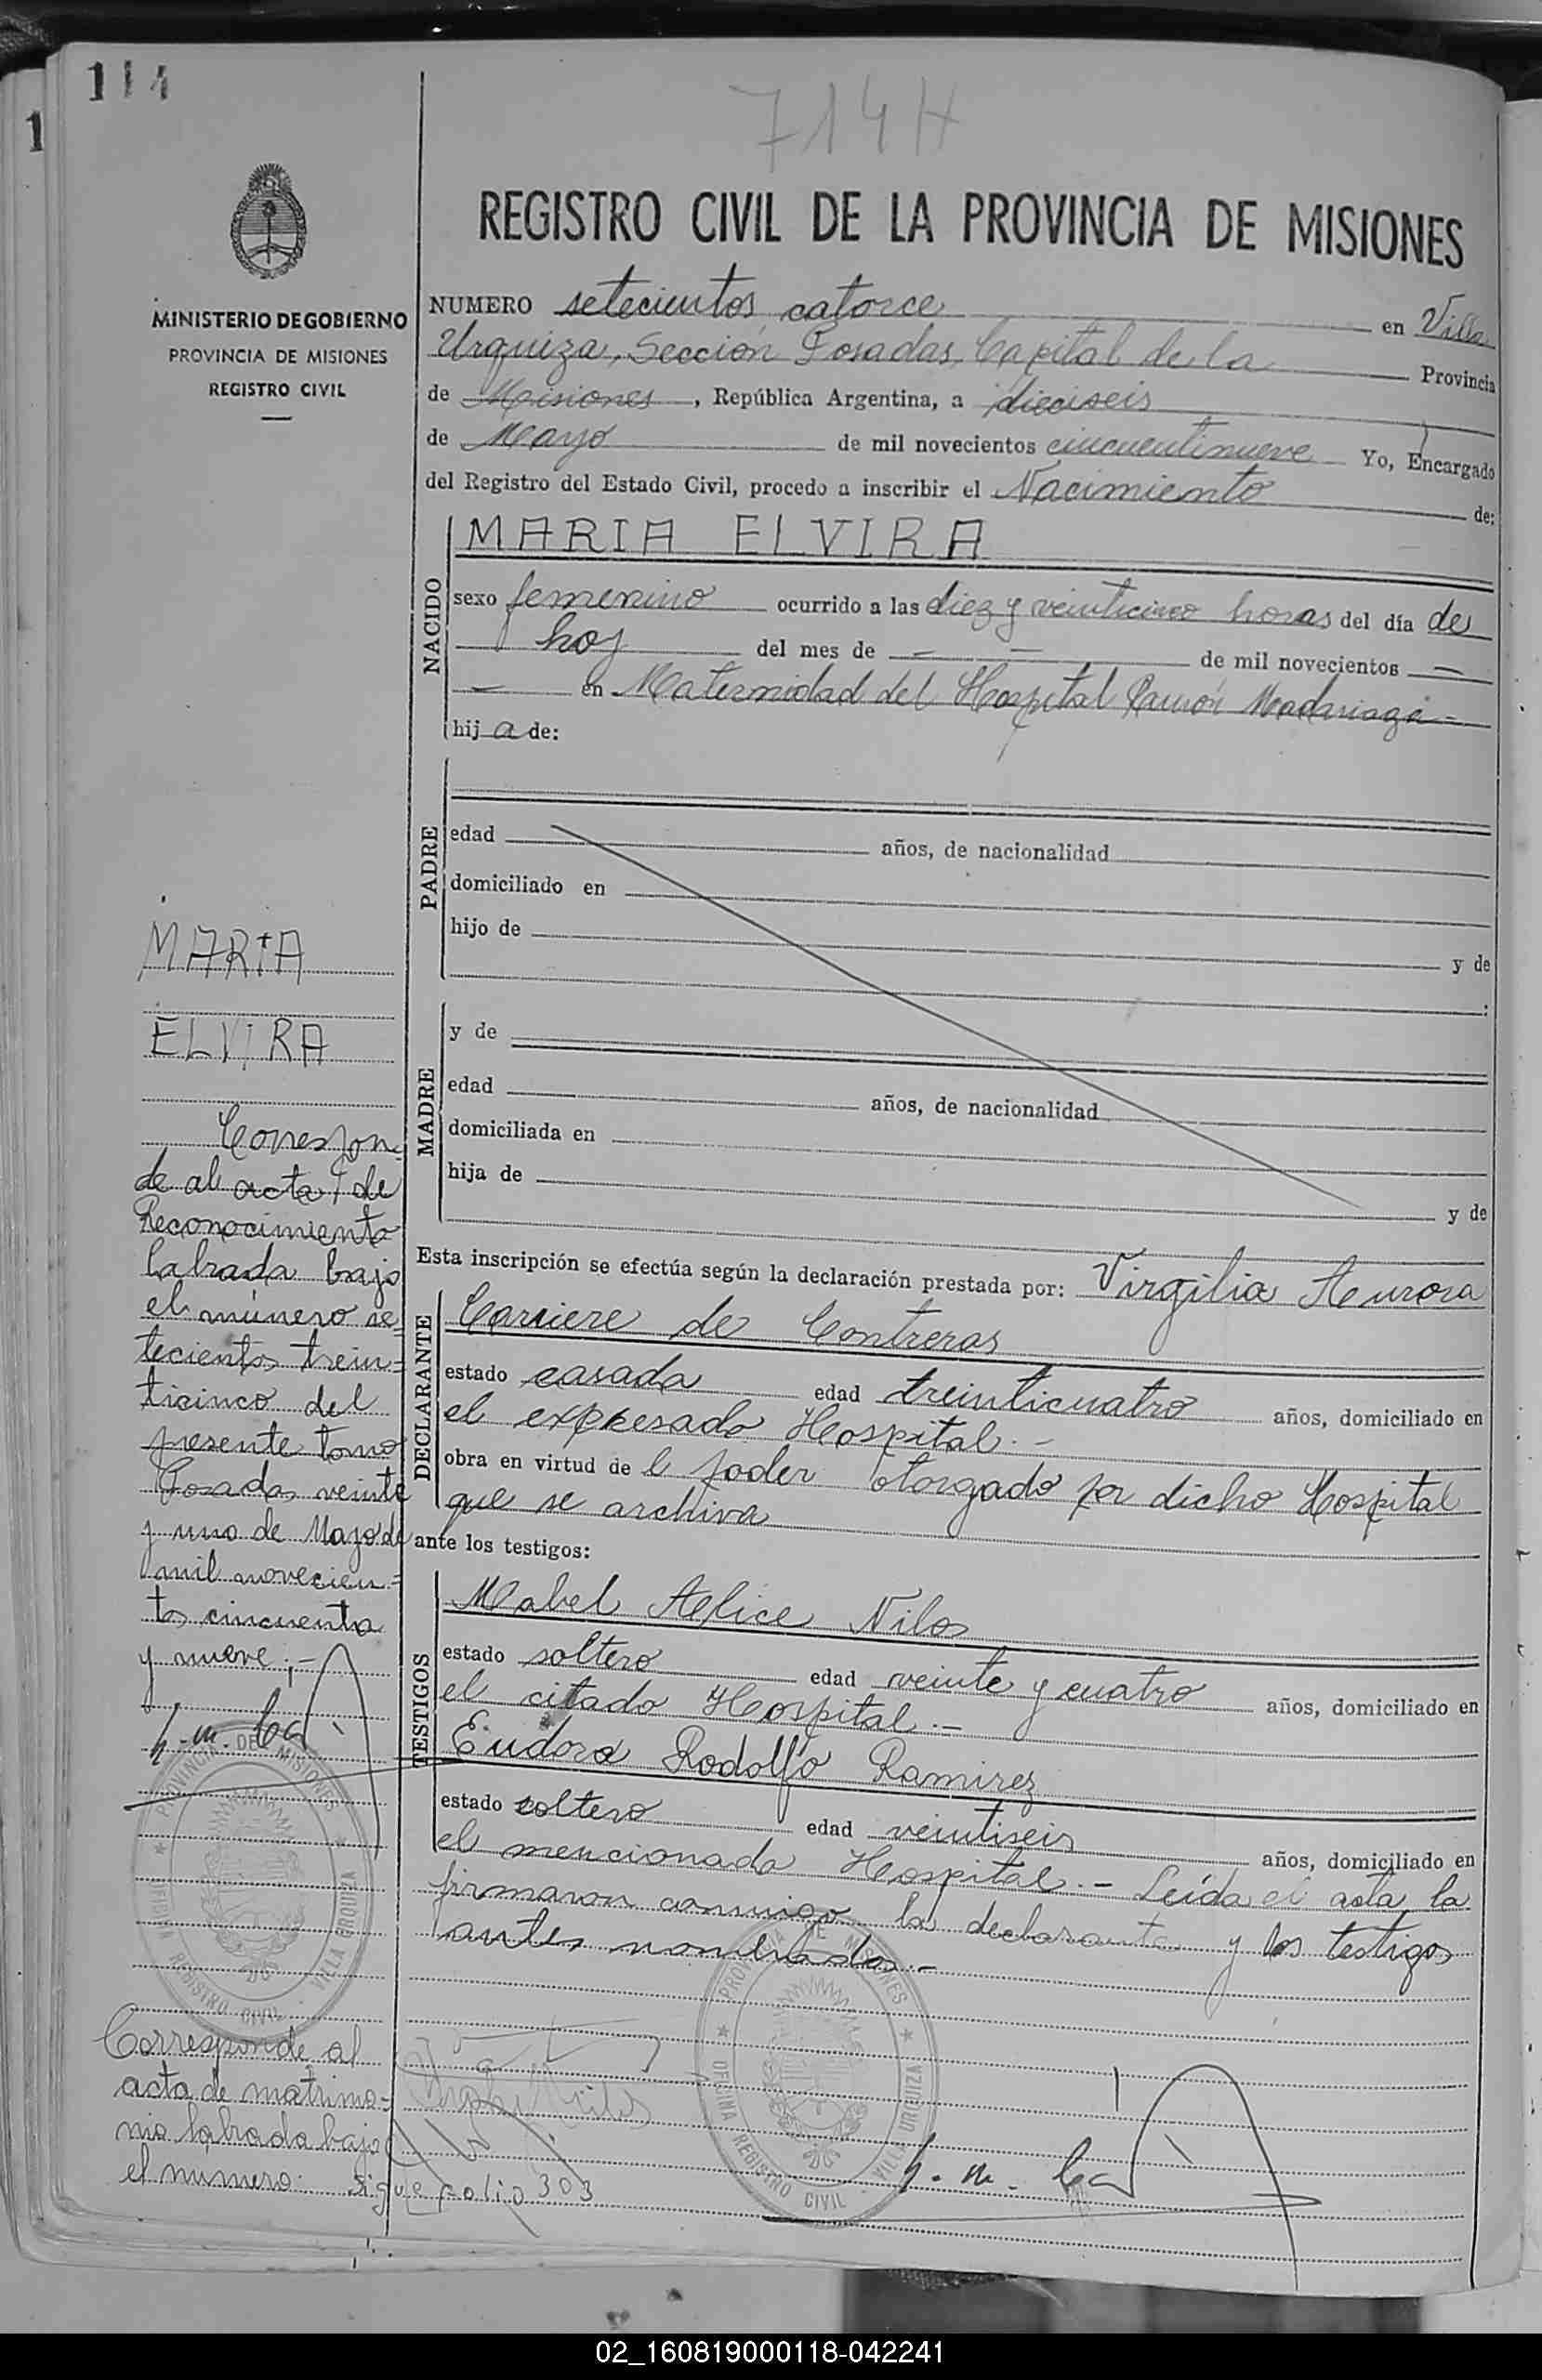 114
1
714H
MINISTERIO DE GOBIERNO
PROVINCIA DE MISIONES
REGISTRO CIVIL
REGISTRO CIVIL DE LA PROVINCIA DE MISIONES
NUMERO setecientos catorce en Villa
Urquiza, Sección Posadas, Capital de la Provincia
de Misiones, República Argentina, a dieciseis
de Mayo de mil novecientos cincuentinueve Yo, Encargado
del Registro del Estado Civil, procedo a inscribir el Nacimiento de:
NACIDO
MARIA ELVIRA
sexo femenino ocurrido a las diez y veinticinco horas del día de
hoy del mes de — — de mil novecientos —
— en Maternidad del Hospital Ramón Madariaga -
hij a de:
PADRE
edad años, de nacionalidad
domiciliado en
hijo de y de
:
MADRE
y de
edad años, de nacionalidad
domiciliada en
hija de y de
Esta inscripción se efectúa según la declaración prestada por: Virgilia Aurora
DECLARANTE
Carriere de Contreras
estado casada edad treinticuatro años, domiciliado en
el expresado Hospital.-
obra en virtud de l poder otorgado por dicho Hospital
que se archiva
ante los testigos:
TESTIGOS
Mabel Alice Nilos
estado soltero edad veinte y cuatro años, domiciliado en
el citado Hospital.-
Eudora Rodolfo Ramirez
estado soltero edad veintiseis años, domiciliado en
el mencionado Hospital.- Leída el acta, la
firmaron conmigo, la declarante y los testigos
antes nombrados.-
MARIA
ELVIRA
Correspon-
de al acta de
Reconocimiento
labrada bajo
el número se-
tecientos trein-
ticinco del
presente tomo
Posadas veinte
y uno de Mayo de
mil novecien-
tos cincuenta
y nueve.-
PROVINCIA DE MISIONES
OFICINA REGISTRO CIVIL - VILLA URQUIZA
Corresponde al
acta de matrimo-
nio labrada bajo
el numero: sigue folio 303
PROVINCIA DE MISIONES
OFICINA REGISTRO CIVIL - VILLA URQUIZA
02_160819000118-042241